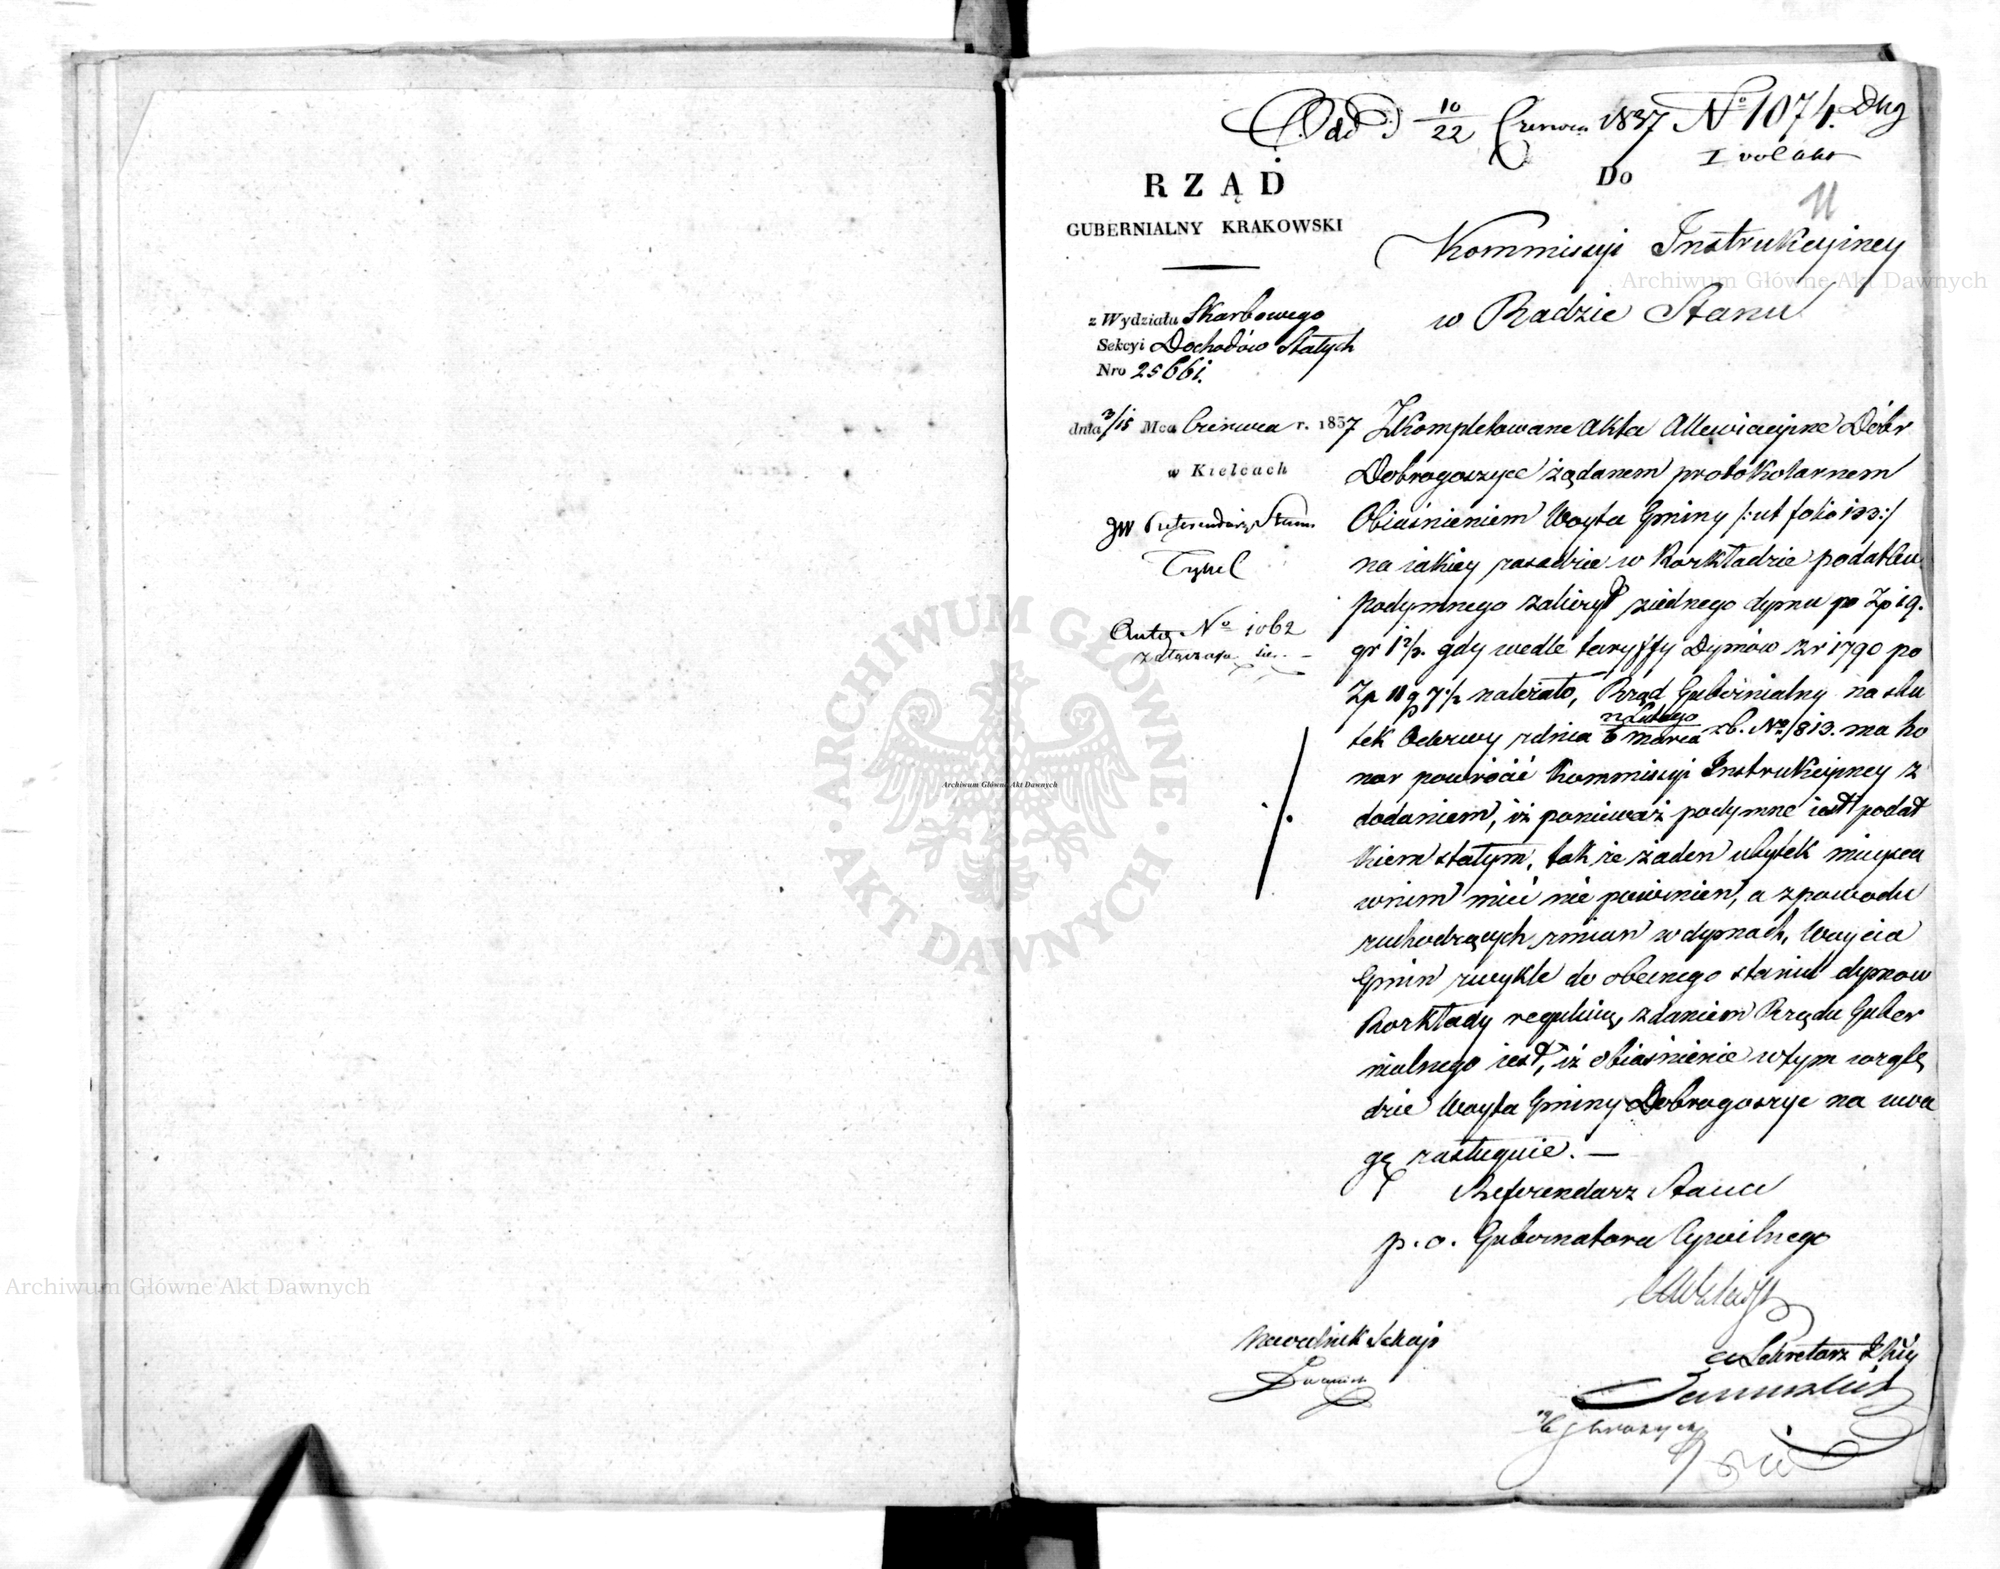 Odd. d. 10/22 Czerwca 1837 No 1074. Dkg
I vol akt
11
RZĄD
GUBERNIALNY KRAKOWSKI
z Wydziału Skarbowego
Sekcyi Dochodów Stałych
Nro 25661.
dnia 3/15 Mca Czerwca r. 1837
w Kielcach
JW Referendarz Stanu
Tykel
No 1062
Do
Kommissyi Instrukcyiney
w Radzie Stanu
Zkompletowane Akta Allewiacyine Dóbr
Dobrogoszyce żądanem protokólarnem
Obiaśnieniem Woyta Gminy /:ut folio 133:/
na iakiey zasadzie w Rozkładzie podatku
podymnego zaliczył z iednego dymu po Zp 19.
gr 1 2/3. gdy wedle taryffy Dymów z r 1790 po
Zp 11 g 7 1/2 należało, Rząd Gubernialny na sku
tek Odezwy z dnia Lutego / 6 Marca r. b. No 813. ma ho
nor powrócić Kommissyi Instrukcyiney z
dodaniem, iż ponieważ podymne iest podat
kiem stałym, tak że żaden ubytek mieysca
w nim mieć nie powinien, a z powodu
zachodzących zmian w dymach, Woyci
Gmin zwykle do obecnego stanu dymów
Rozkłady reguluią, zdaniem Rządu Guber
nialnego iest, iż obiaśnienie w tym wzglę
dzie Woyta Gminy Dobrogoszyce na uwa
gę zasługuie. —
Referendarz Stanu
p. o. Gubernatora Cywilnego
Naczelnik Sekcyi
Sekretarz
Archiwum Główne Akt Dawnych
Archiwum Główne Akt Dawnych
Archiwum Główne Akt Dawnych
ARCHIWUM GŁÓWNE
AKT DAWNYCH